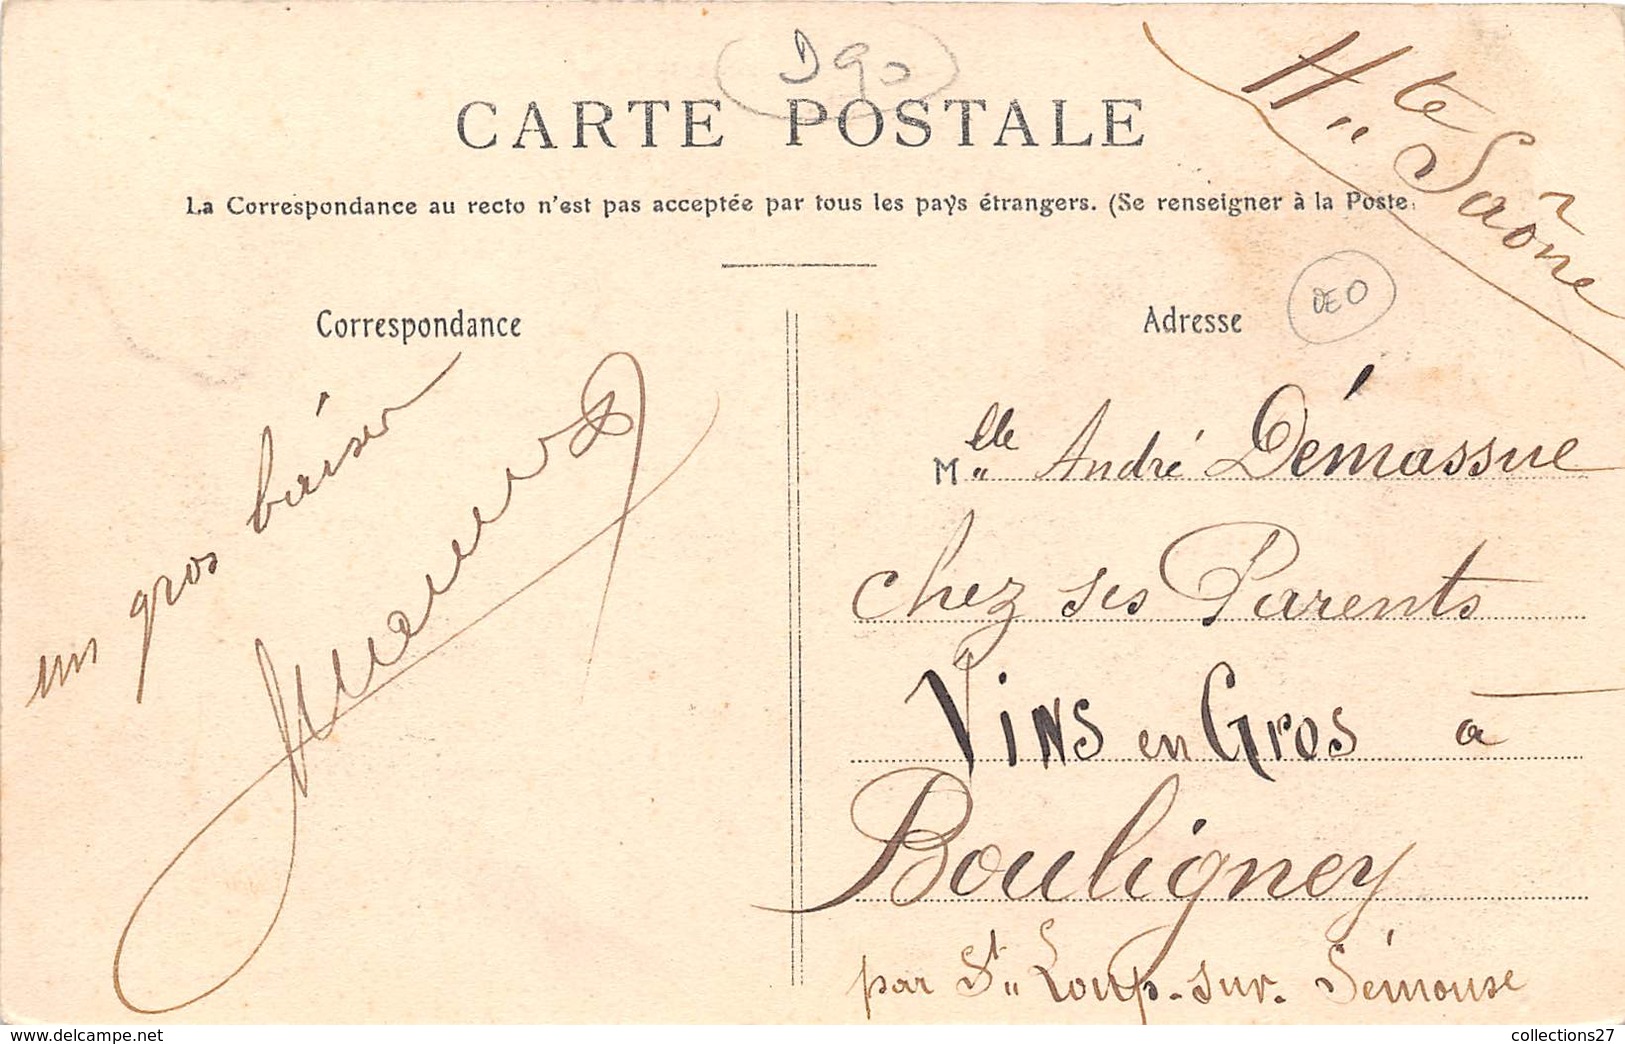 D90
CARTE POSTALE
La Correspondance au recto n'est pas acceptée par tous les pays étrangers. (Se renseigner à la Poste.
Hte Saône
Correspondance
un gros baiser
Adresse
DEO
Melle André Démassue
chez ses Parents
Vins en Gros à
Bouligney
par St Loup-sur-Sémouse
collections27